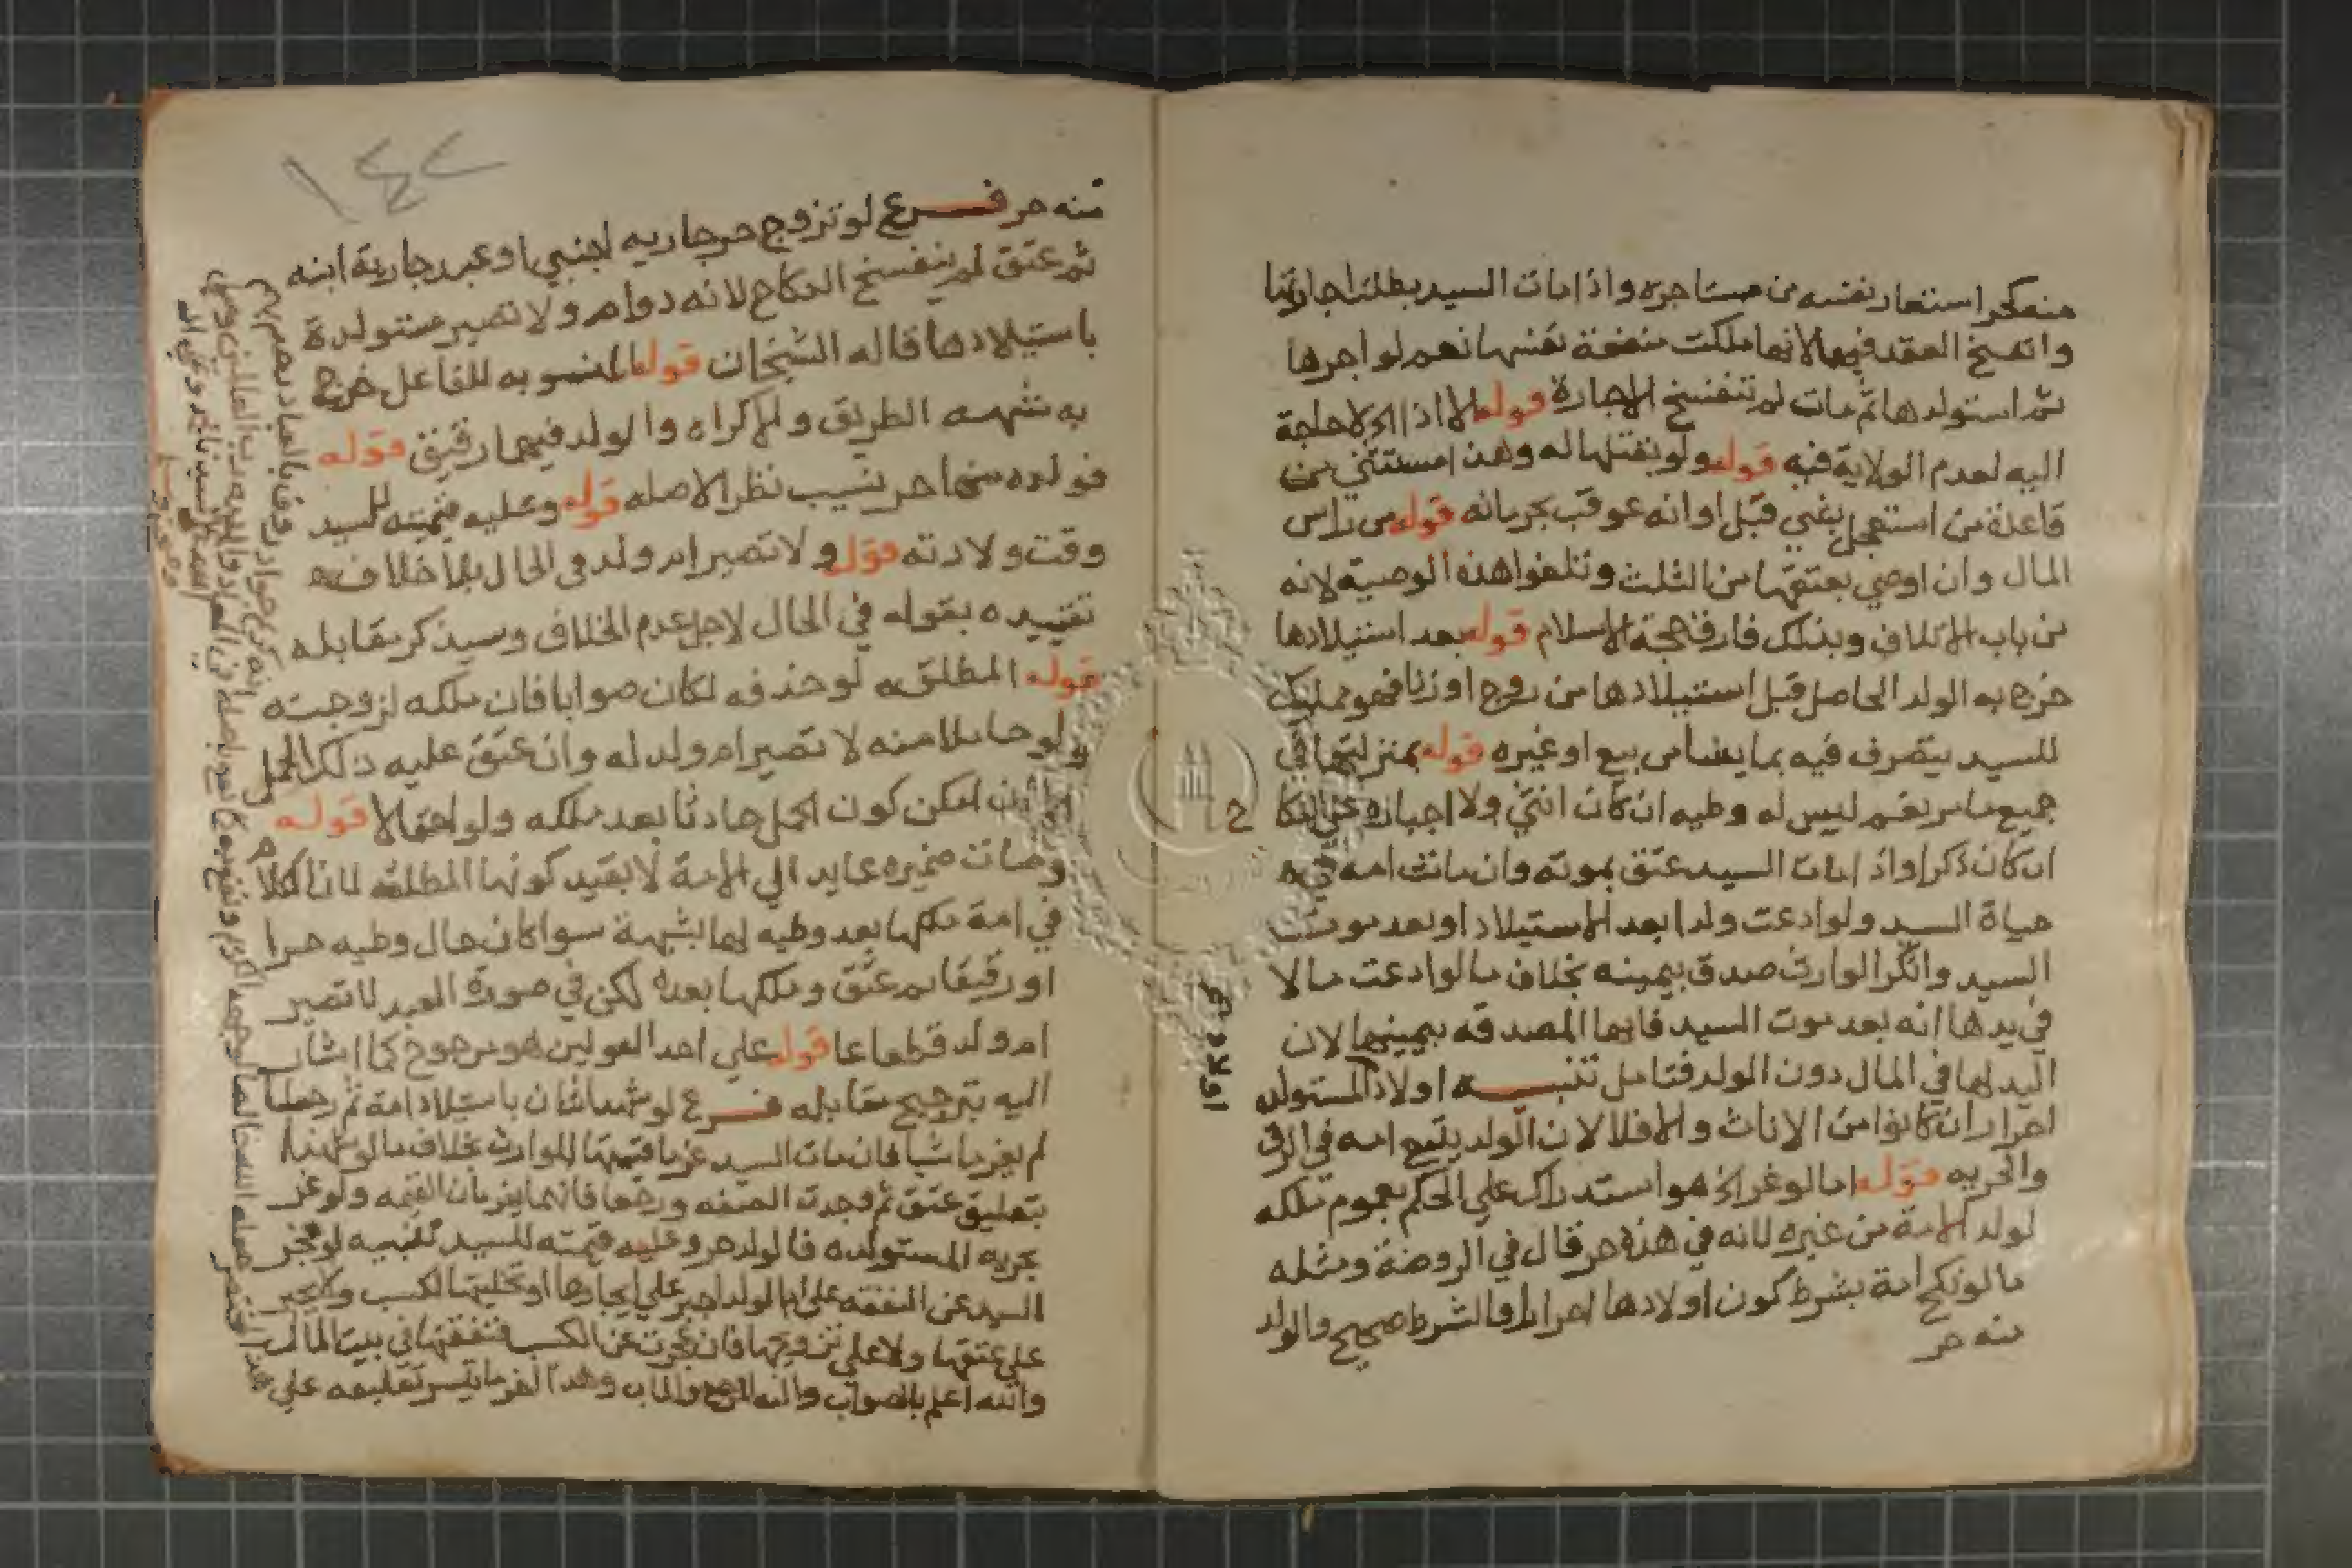 منه كحر استعار نفسه من مستاجره واذا مات السيد بطلت اجارتها
وانفسخ العقد فيهما لانها ملكت منفعة نفسها نعم لو اجرها
ثم استولدها ثم مات لم تنفسخ الاجارة قوله الا اذا الخ لا حاجة
اليه لعدم الولاية فيه قوله ولو بقتلها له وهذا مستثني من
قاعدة من استعجل بغي قبل اوانه عوقب بحرمانه قوله من راس
المال وان اوصي بعتقها من الثلث وتلغوا هذه الوصية لانه
من باب الاتلاف وبذلك فارق حجة الاسلام قوله بعد استيلادها
خرج به الولد الحاصل قبل استيلادها من زوج او زنا فهو مملوك
للسيد يتصرف فيه بما يشا من بيع او غيره قوله بمنزلتها في
جميع ما مر نعم ليس له وطيه ان كان انثي ولا اجباره علي النكا
ان كان ذكرا واذا مات السيد عتق بموته وان ماتت امه في
حياة السيد ولو ادعت ولدا بعد الاستيلاد او بعد موت
السيد وانكر الوارث صدق بيمينه بخلاف ما لو ادعت مالا
في يدها انه بعد موت السيد فانها المصدقه بيمينها لان
اليد لها في المال دون الولد فتامل تنبيه اولاد المستولده
احرار ان كانوا من الاناث والا فلا لان الولد يتبع امه في الرق
والحريه قوله اما لو غر الخ هو استدراك علي الحكم بعموم ملكه
لولد الامة من غيره لانه في هذه حر قال في الروضة ومثله
ما لو نكح امة بشرط كون اولادها احرارا فالشرط صحيح والولد
منه حر
اولاد
١٤٢
منه حر فرع لو تزوج حر جاريه اجنبي او عبد جارية ابنه
ثم عتق لم ينفسخ النكاح لانه دوام ولا تصير مستولدة
باستيلادها قاله الشيخان قوله المنسوبه للفاعل خرج
به شبهه الطريق والاكراه والولد فيهما رقيق قوله
فولده منها حر نسيب نظر الاصله قوله وعليه قيمته للسيد
وقت ولادته قوله ولا تصير ام ولد في الحال بلا خلاف
تقييده بقوله في الحال لاجل عدم الخلاف وسيذكر مقابله
قوله المطلقه لو حذفه لكان صوابا فان ملكه لزوجته
ولو حاملا منه لا تصير ام ولد له وان عتق عليه ذلك الحمل
امكن كون الحمل حادثا بعد ملكه ولو احتمالا قوله
ضميره عايد الي الامة لا بقيد كونها المطلقه لان الكلام
في امة ملكها بعد وطيه لها بشبهة سوا كان حال وطيه حرا
او رقيقا ثم عتق وملكها بعده لكن في صورة العبد لا تصير
ام ولد قطعا قوله علي احد القولين هو مرجوح كما اشار
اليه بترجيح مقابله فرع لو شهد اثنان باستيلاد امة ثم رجعا
لم يغرما شيا فان مات السيد غرما قيمتها للوارث بخلاف ما لو شهدا
بتعليق عتق ثم وجدت الصفه ورجعا فانهما يغرمان القيمه ولو غر
بحريه المستولده فالولد حر وعليه قيمته للسيد تنبيه لو عجز
السيد عن النفقه علي ام الولد اجبر علي ايجارها او تخليتها لكسب ولا يجبر
علي عتقها ولا علي تزويجها فان عجزت عن الكسب فنفقتها في بيت المال
والله اعلم بالصواب واليه المرجع والماب وهذا اخر ما تيسر تعليقه علي